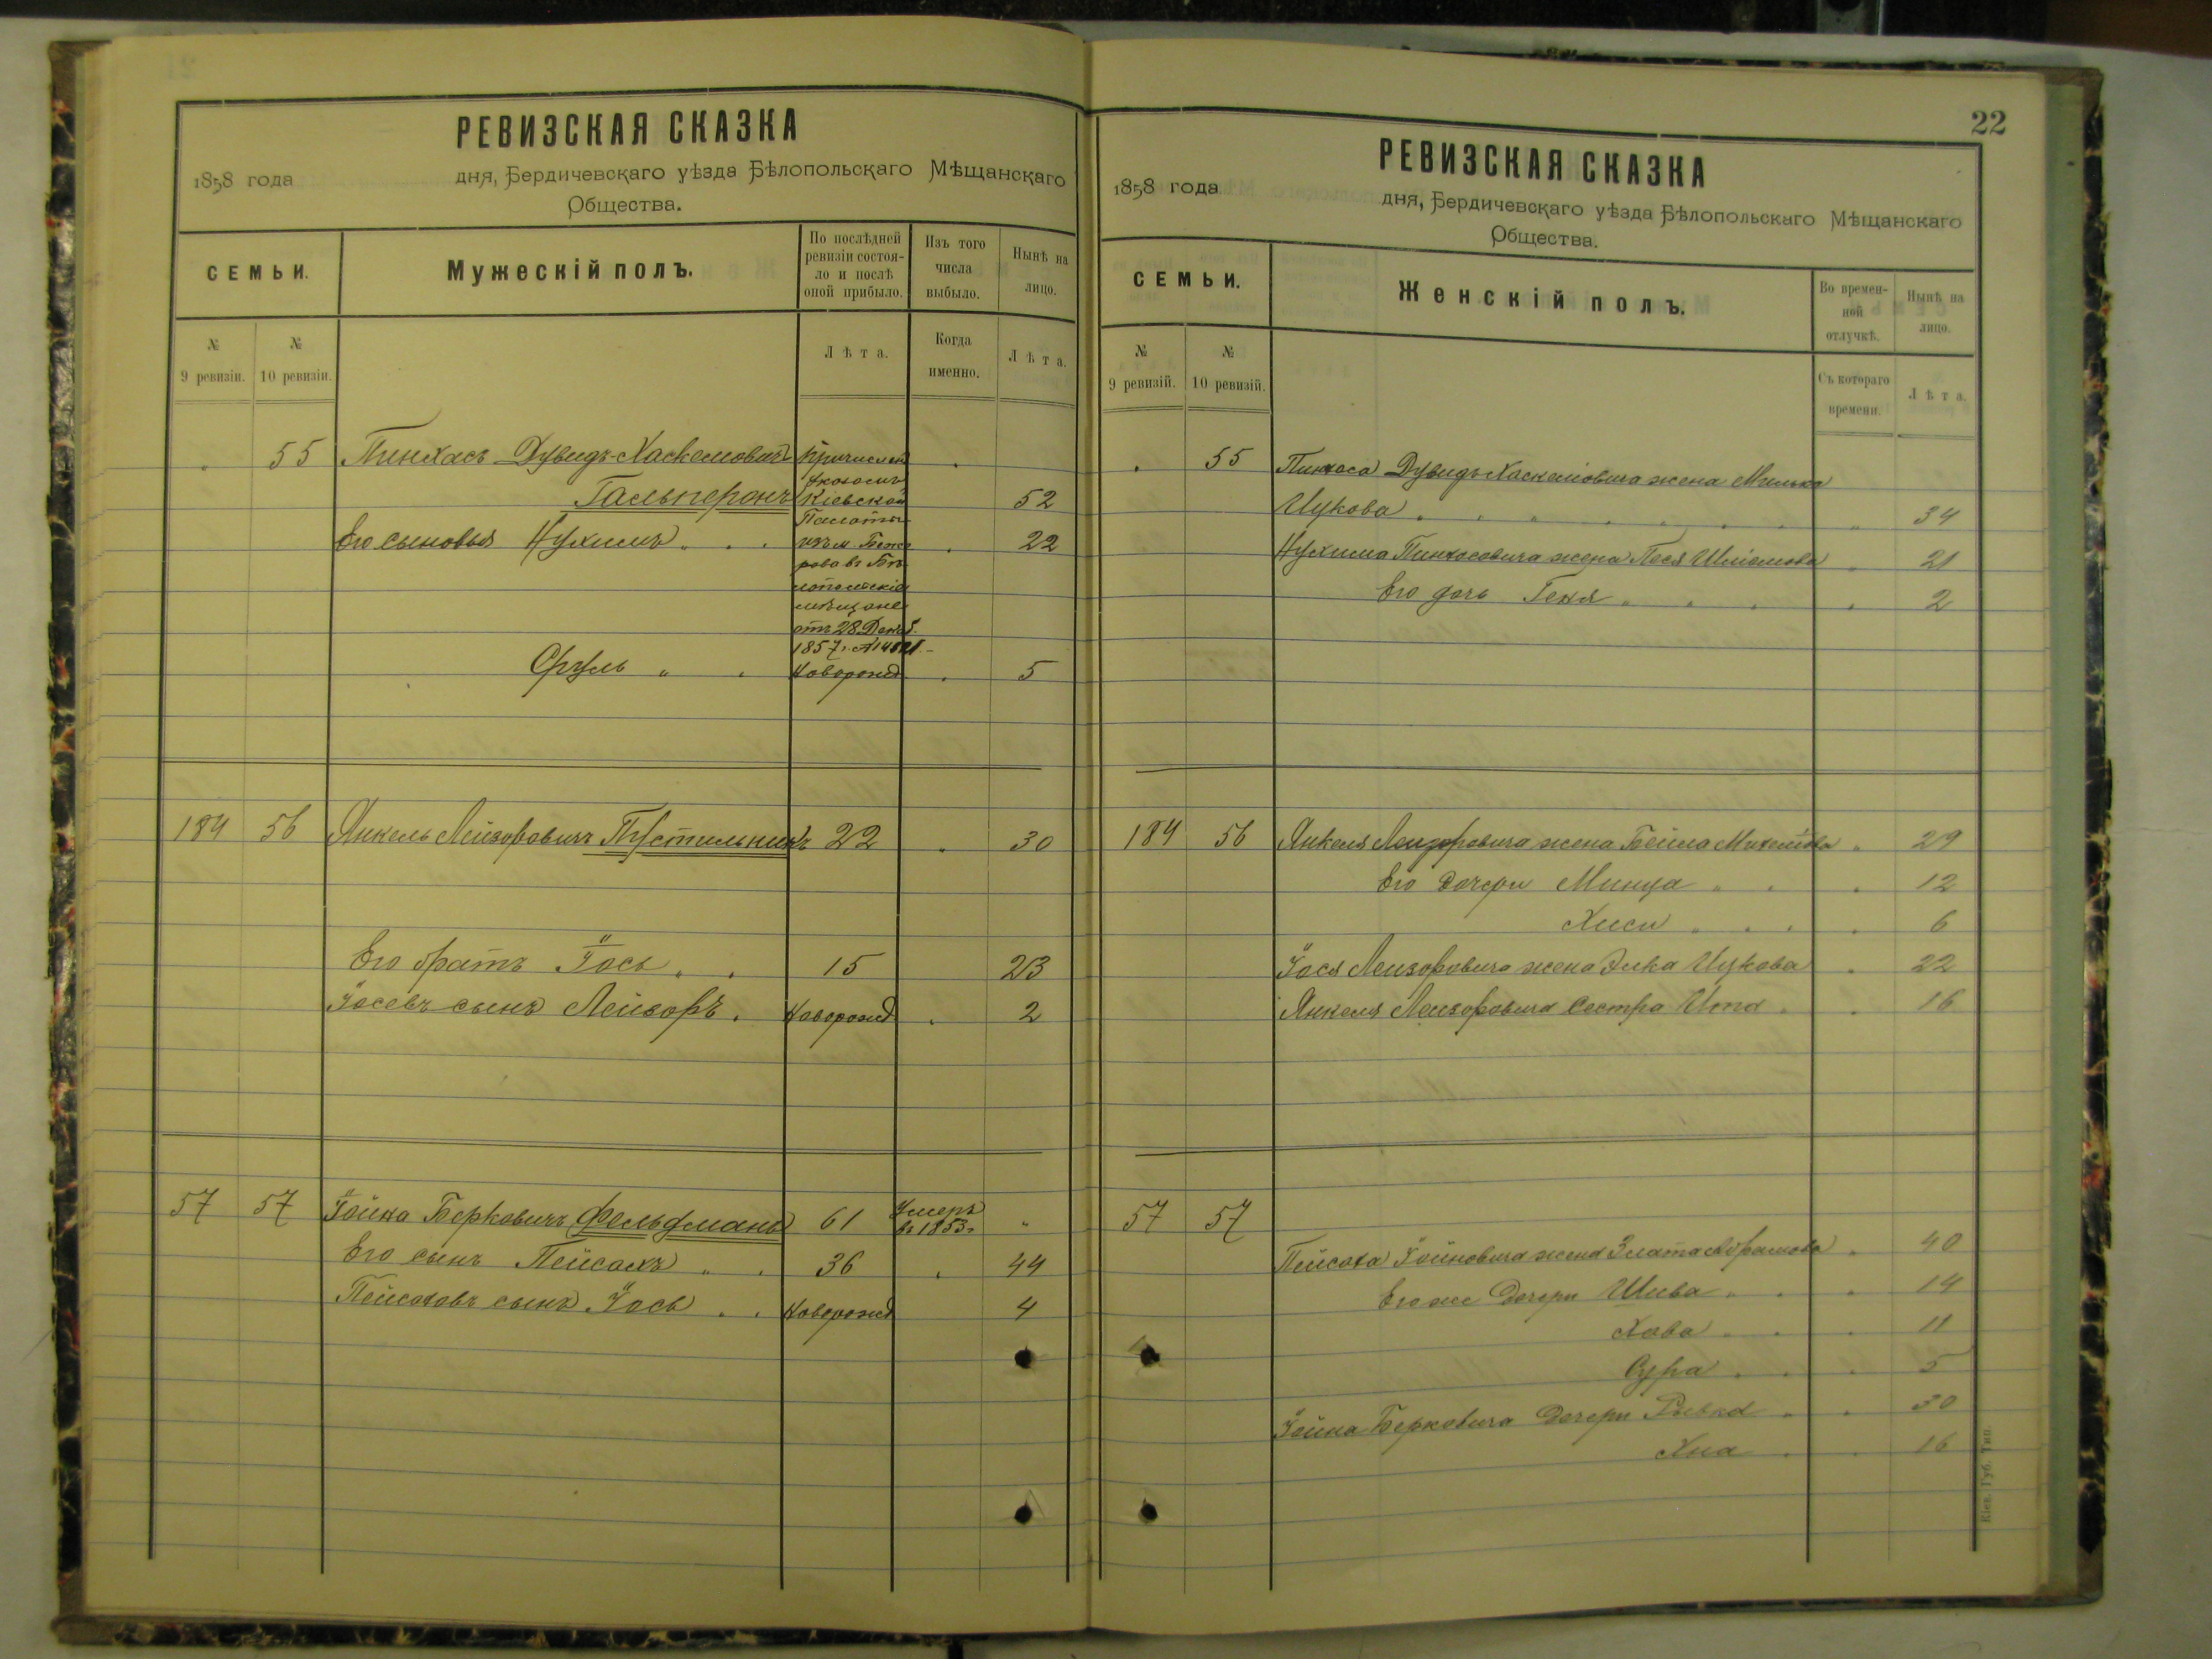 РЕВИЗСКАЯ СКАЗКА
1858 года дня, Бердичевскаго уѣзда Бѣлопольскаго Мѣщанскаго
Общества.
СЕМЬИ.
Мужескій полъ.
По послѣдней ревизіи состоя-
ло и послѣ
оной прибыло.
Изъ того
числа
выбыло.
Нынѣ на
лицо.
№
9 ревизіи.
№
10 ревизіи.
Лѣта.
Когда
именно.
Лѣта.
" 55 Пинхасъ Дувидъ-Хаскелевичъ
Гальперонъ 52
Его сыновья Нухимъ " . . 22
Причислен
Указомъ
Кіевской
Палаты
изъ м.
мѣщане
отъ 28 Декаб.
1857 г.
Сруль " . Новорожд . 5
184 56 Янкель Лейзоровичъ Пустильникъ 22 " 30
Его братъ Іось " . 15 23
Іосевъ сынъ Лейзоръ . Новорожд . 2
57 57 Іойна Берковичъ Фельдманъ 61 Умеръ
въ 1853 г "
Его сынъ Пейсахъ " . 36 . 44
Пейсаховъ сынъ Іось . . Новорожд 4
22
РЕВИЗСКАЯ СКАЗКА
1858 года дня, Бердичевскаго уѣзда Бѣлопольскаго Мѣщанскаго
Общества.
СЕМЬИ.
Женскій полъ.
Во времен-
ной
отлучкѣ.
Нынѣ на
лицо.
№
9 ревизій.
№
10 ревизій.
Съ котораго
времени.
Лѣта.
" 55 Пинхаса Дувидъ Хаскелевича жена Милька
Ицкова 34
Нухима Пинхосовича жена Песя 21
Его дочь Геня " " . . 2
184 56 Янкеля Лейзоровича жена Бейла " 29
Его дочери Минца " . . 12
Хиси " . . . 6
Іося Лейзоровича жена Элка Ицкова . 22
Янкеля Лейзоровича сестра Ита . . 16
57 57
Пейсаха Іойновича жена Злата Абрамова . 40
Его же дочери Шива " . . 14
Хава . . . 11
Сура . . . 5
Іойна Берковича дочери Ривка . . 30
Хна . . 16
Кіев. Губ. Тип.